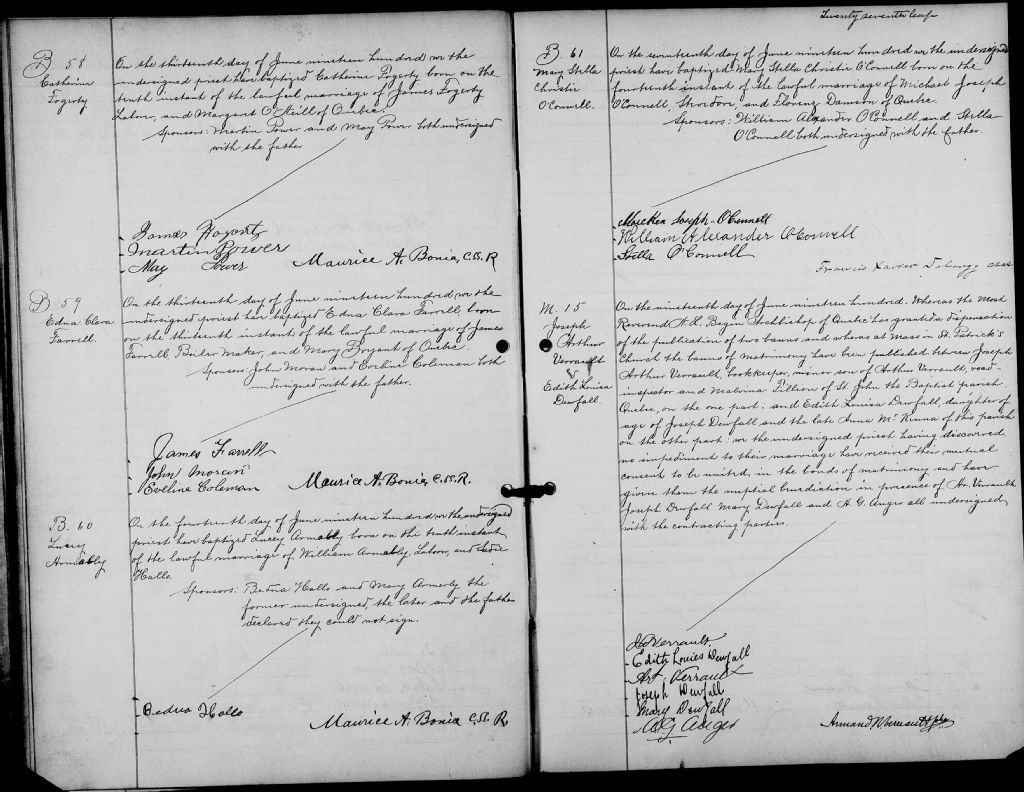 B 58
Catherine
Fogerty
On the thirteenth day of June nineteen hundred we the
undersigned priest have baptized Catherine Fogerty born on the
tenth instant of the lawful marriage of James Fogerty
Labor, and Margaret O'Neill of Quebec.
Sponsors: Martin Power and May Power both undersigned
with the father
James Fogerty
Martin Power
May Power
Maurice A. Bonia, C.SS.R
B 59
Edna Clara
Farrell.
On the thirteenth day of June nineteen hundred we the
undersigned priest have baptized Edna Clara Farrell, born
on the thirteenth instant of the lawful marriage of James
Farrell Boiler Maker, and Mary Bryant of Quebec.
Sponsors: John Moran and Eveline Coleman both
undersigned with the father.
James Farrell
John Moran
Eveline Coleman
Maurice A. Bonia, C.SS.R.
B. 60
Lucey
Armably
On the fourteenth day of June nineteen hundred we the undersigned
priest have baptized Lucey Armably born on the tenth instant
of the lawful marriage of William Armably, Labor, and
Hallo.
Sponsors: Bedua Hallo and Mary Armerly the
former undersigned, the later and the father
declared they could not sign.
Bedua Hallo
Maurice A. Bonia C.SS.R.
Twenty seventh leaf
B. 61
Mary Stella
Christie
O'Connell.
On the seventeenth day of June nineteen hundred we the undersigned
priest have baptized Mary Stella Christie O'Connell born on the
fourteenth instant of the lawful marriage of Michael Joseph
O'Connell, Stevedore, and Florence Dawson of Quebec.
Sponsors: William Alexander O'Connell and Stella
O'Connell both undersigned with the father.
Joseph O'Connell
William Alexander O'Connell
Stella O'Connell
Francis Xavier
M. 15
Joseph
Arthur
Verrault
&
Edith Louisa
Dewfall.
On the nineteenth day of June nineteen hundred. Whereas the Most
Reverend N.L. Begin Archbishop of Quebec has granted a dispensation
of the publication of two banns and wheras at Mass in St. Patrick's
Church the banns of matrimony have been published between Joseph
Arthur Verrault, bookkeeper, minor son of Arthur Verrault, road-
inspector and Malvina Fillion of St. John the Baptist parish
Quebec, on the one part: and Edith Louisa Dewfall, daughter of
age of Joseph Dewfall and the late Anna McKinna of this parish
on the other part: we the undersigned priest having discovered
no impediment to their marriage have received their mutual
consent to be united in the bonds of matrimony and have
given them the nuptial benediction in presence of Ar. Verrault
Joseph Dewfall Mary Dewfall and A. G. Auger all undersigned
with the contracting parties.
Verrault
Edith Louies Dewfall
Art. Verrault
Joseph Dewfall
Mary Dewfall
A.G. Auger
Armand